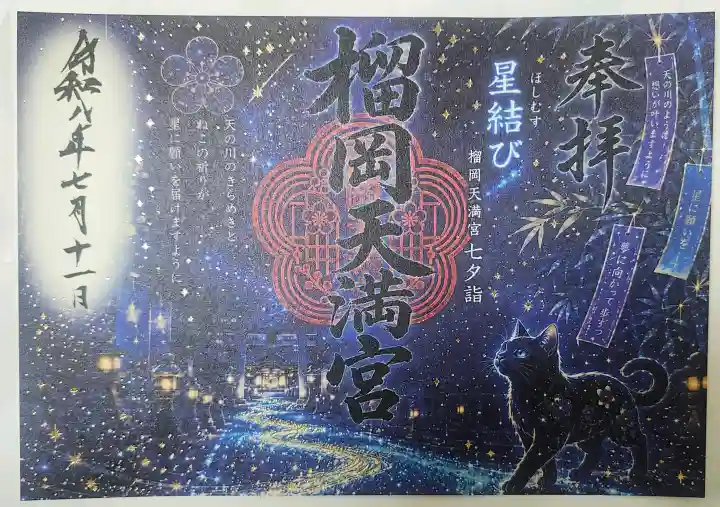 奉拝
天の川のよう
想いが叶いますように
星に願いを
夢に向かって歩
ほしむす
星結び
榴岡天満宮 七夕詣
榴岡天満宮
天の川のきらめきと
ねこの祈りが
星に願いを届けますように
令和八年七月十一日